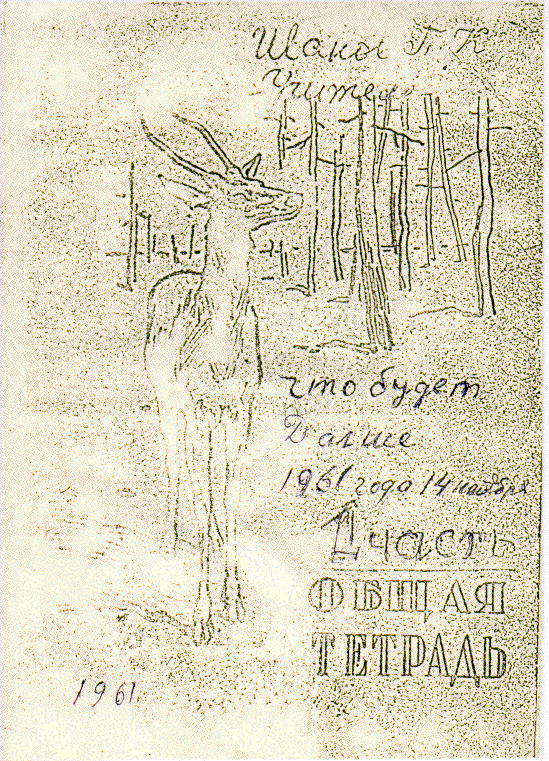 Шакы Г. К
Учитель
что будет
Дальше
1961 года 14 ноября
1 часть
ОБЩАЯ
ТЕТРАДЬ
1961